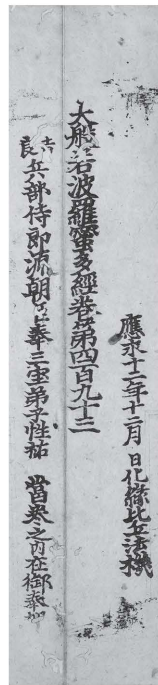 應永十二年十二月 日化縁比丘法機
大般若波羅蜜多經卷第四百九十三
吉良兵部侍郎源朝臣奉三宝弟子性祐 當巻之内在御奉加